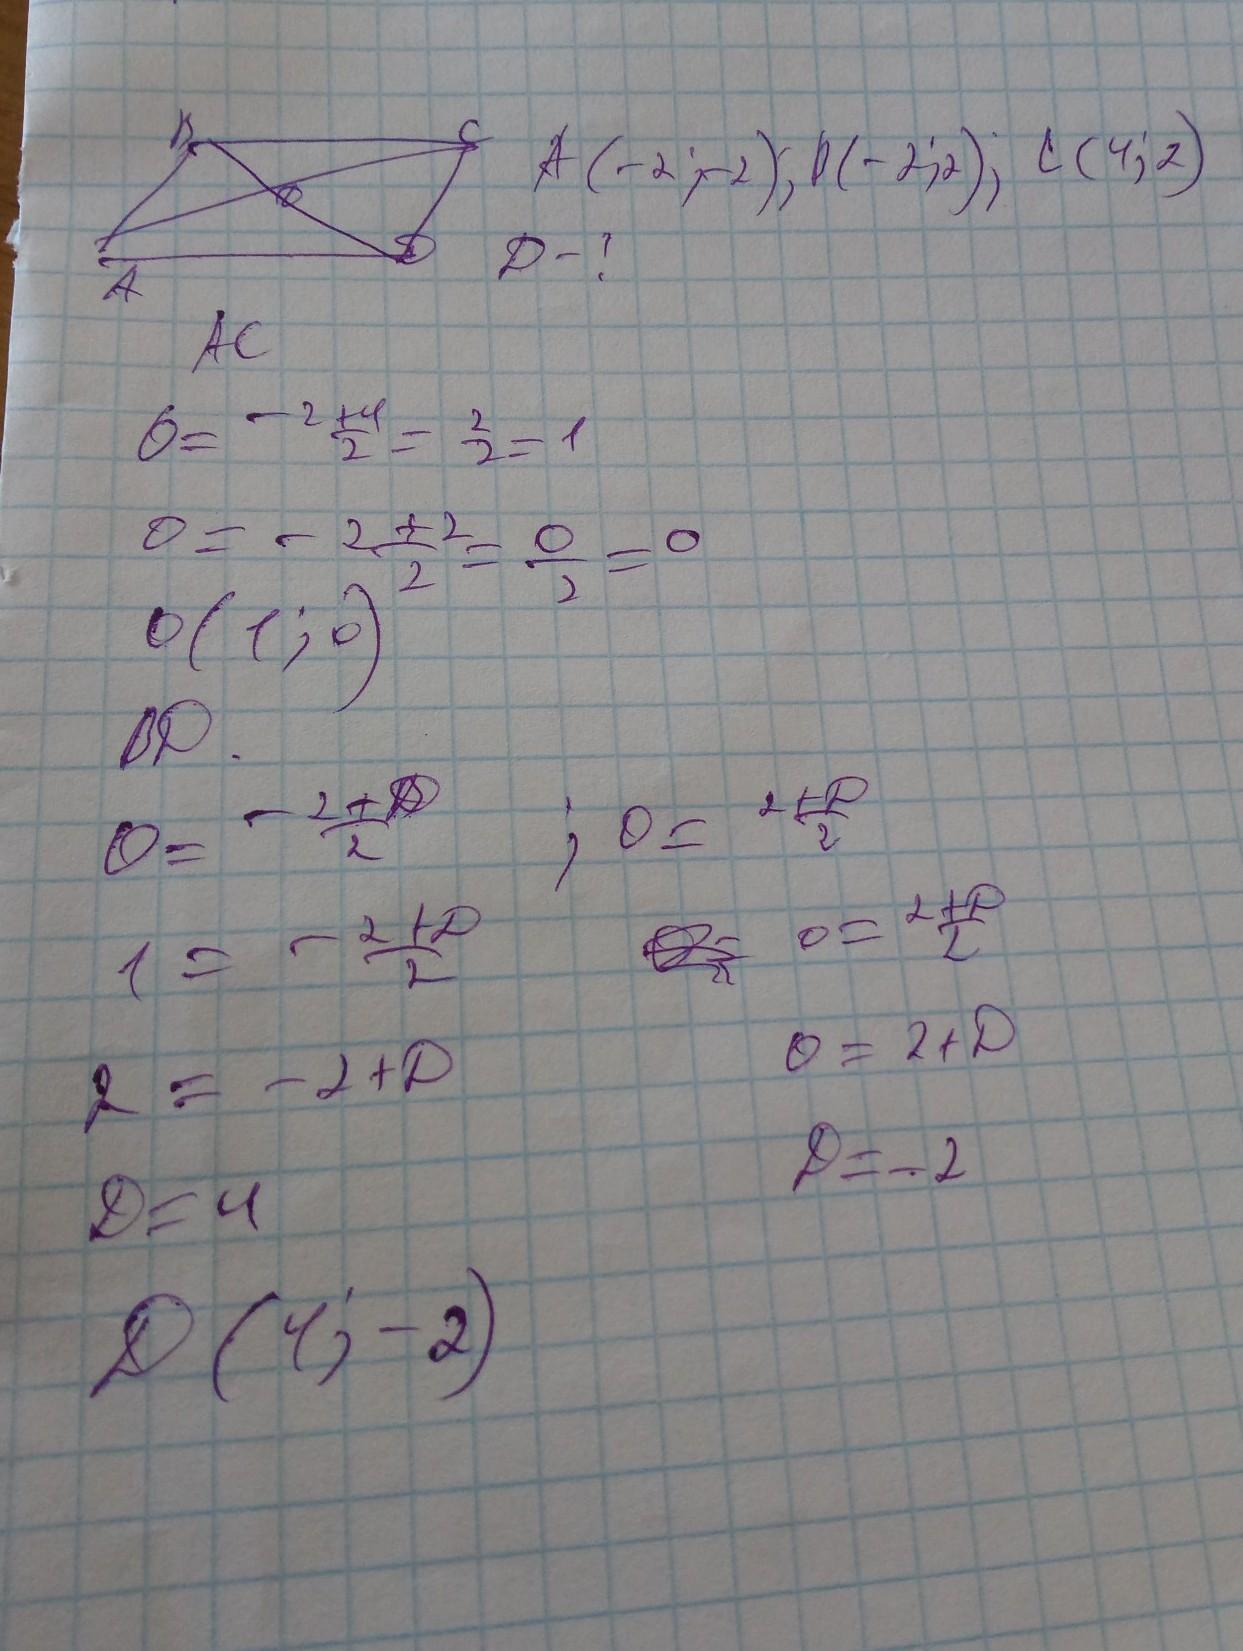 B C
O
A D
A(-2;-2); B(-2;2); C(4;2)
D-?
AC
O = -2+4/2 = 2/2 = 1
O = -2+2/2 = 0/2 = 0
O(1;0)
BD.
O = -2+D/2 ; O = 2+D/2
1 = -2+D/2 0 = 2+D/2
2 = -2+D 0 = 2+D
D=4 D=-2
D(4;-2)